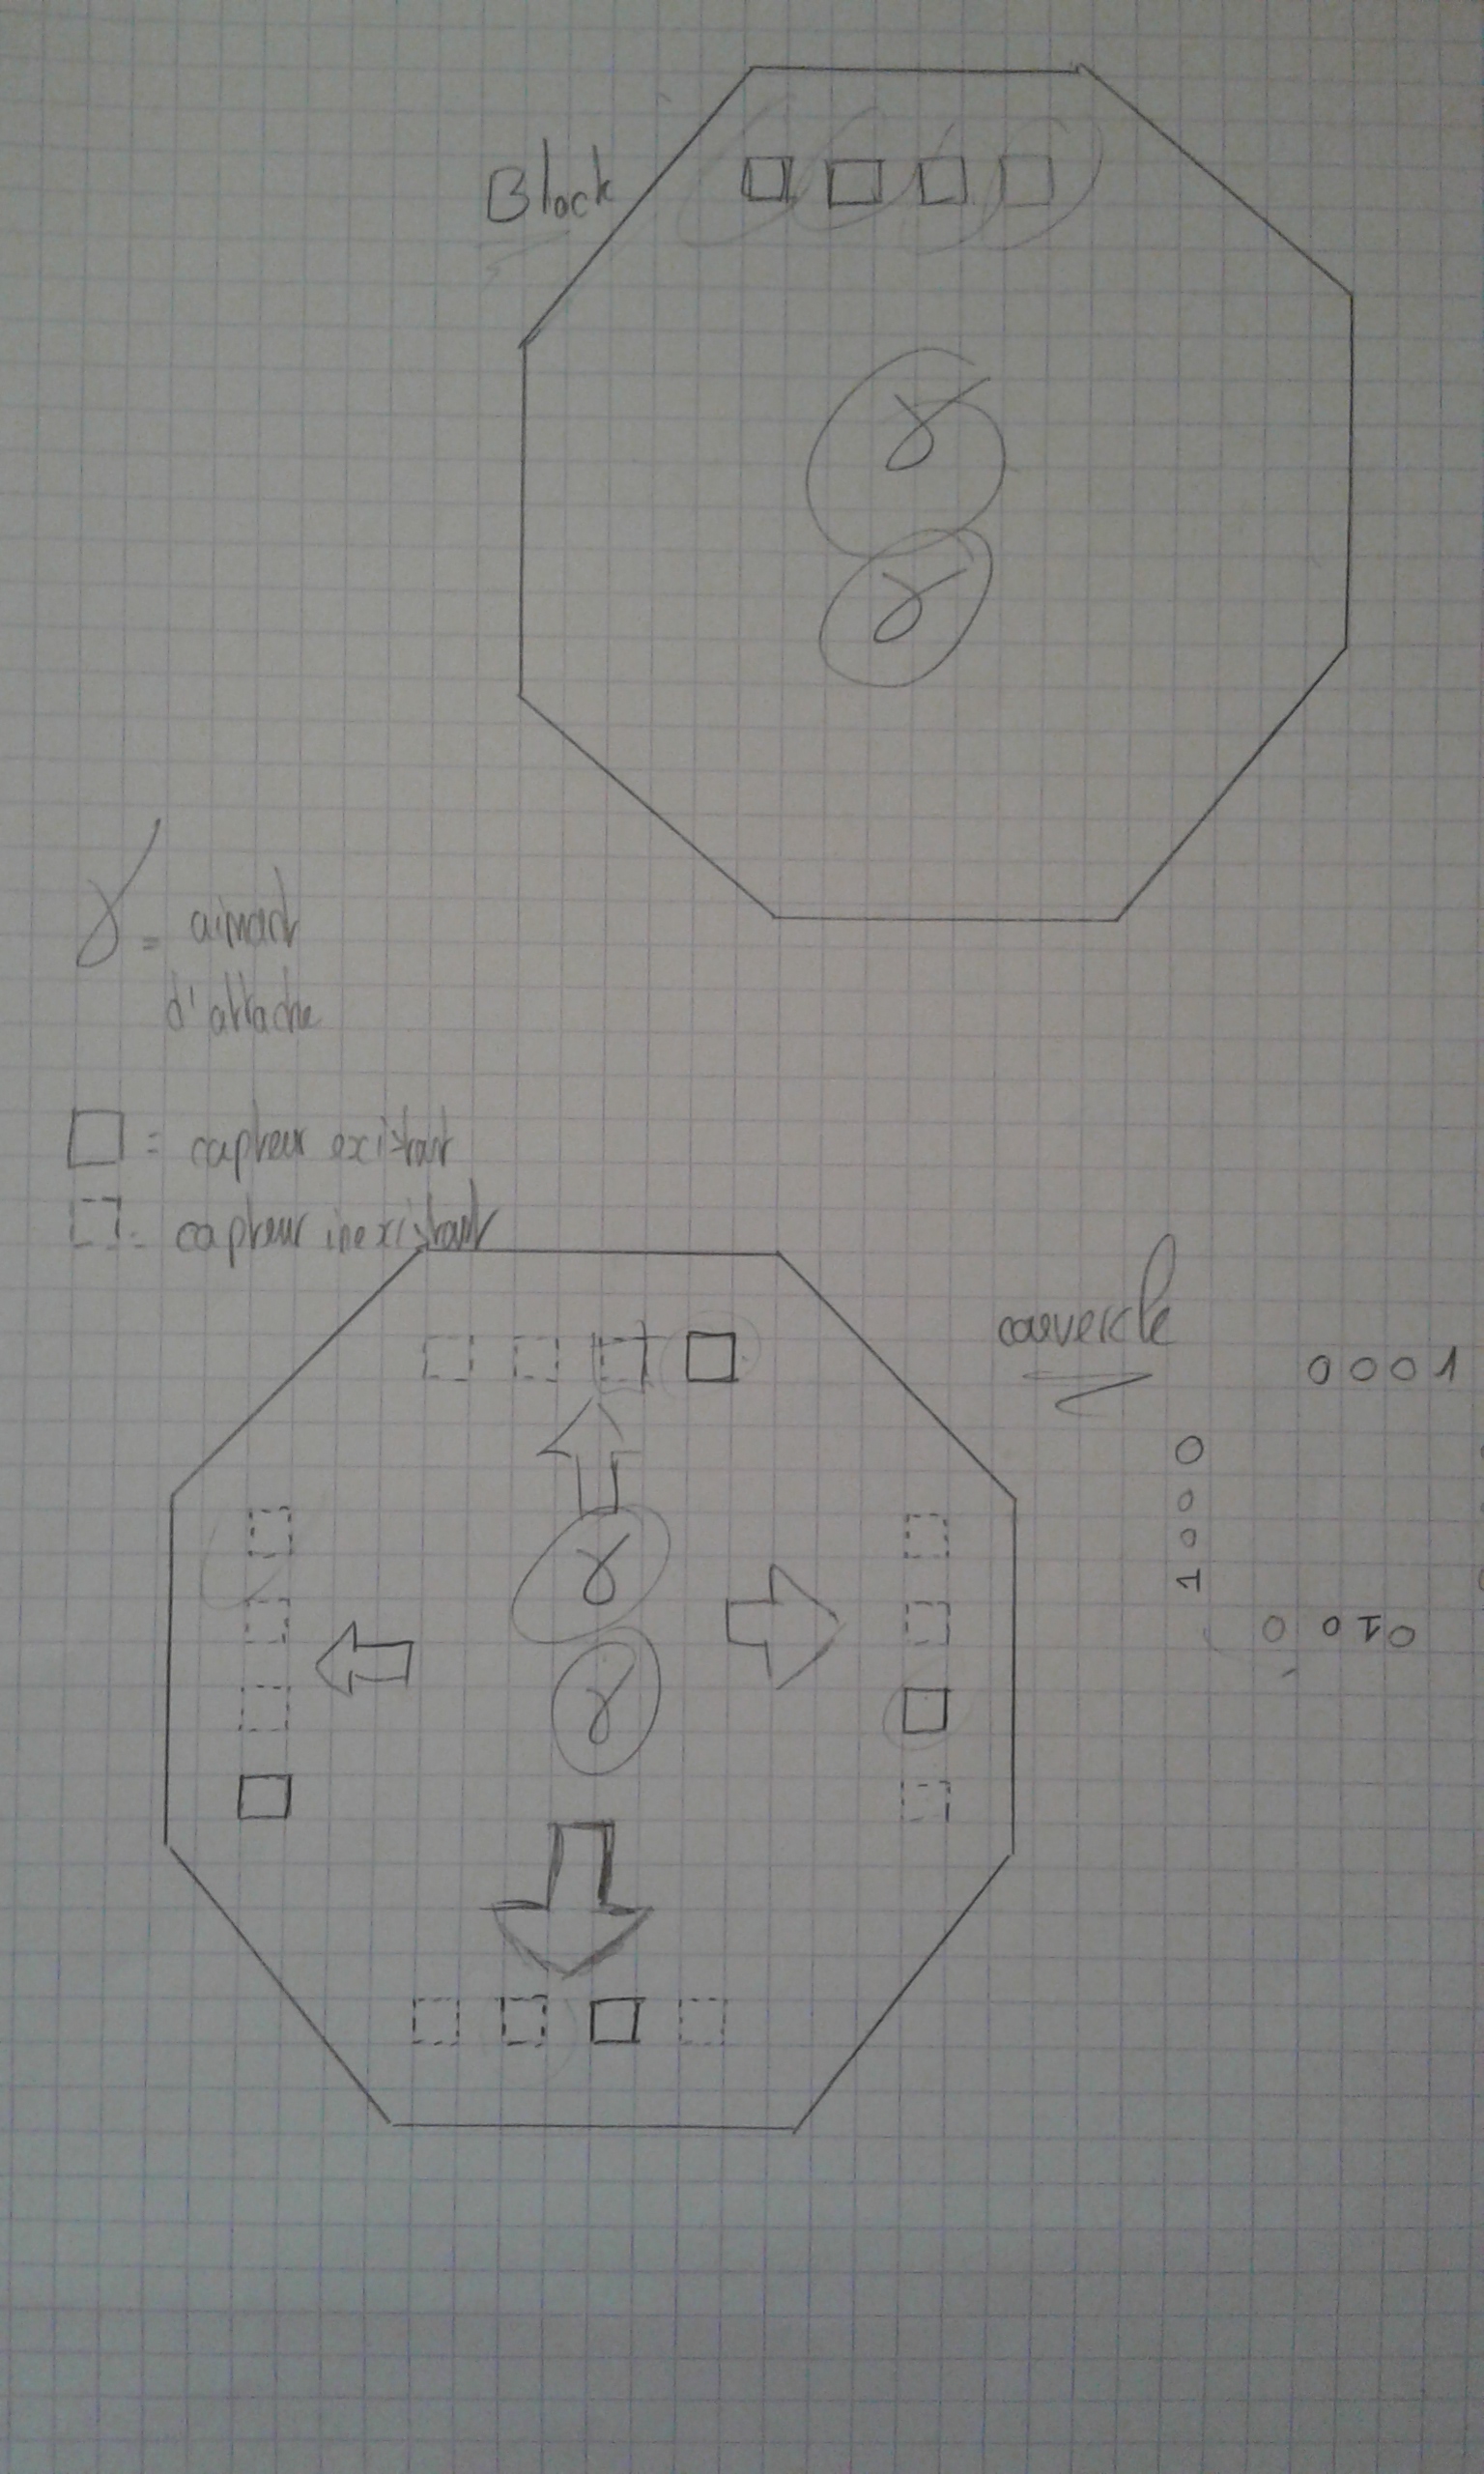 Block
γ
γ
γ = aimant
d'attache
= capteur existant
= capteur inexistant
couvercle
0001
1000
0100
γ
γ